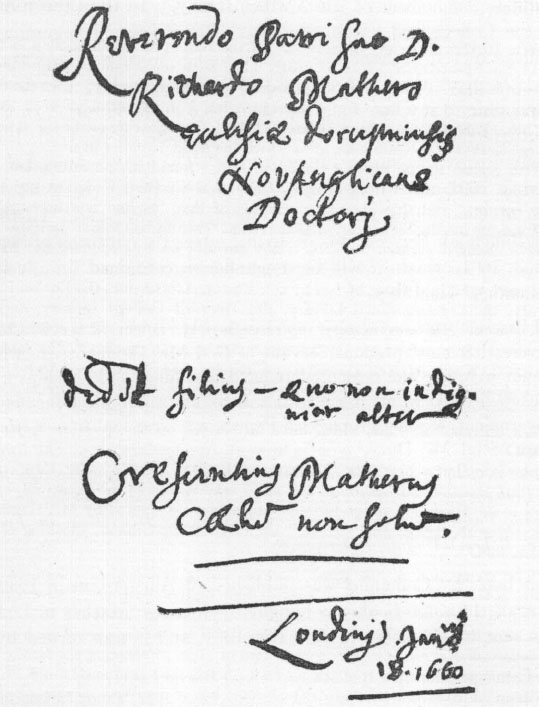 Reverendo Patri suo D.
Richardo Mathero
ecclesiæ
NovAnglicanæ
Doctori,
dedit filius - quo non indig-
nior alter
Crescentius Matherus
Cælū non solū.
Londini Jan
18. 1660